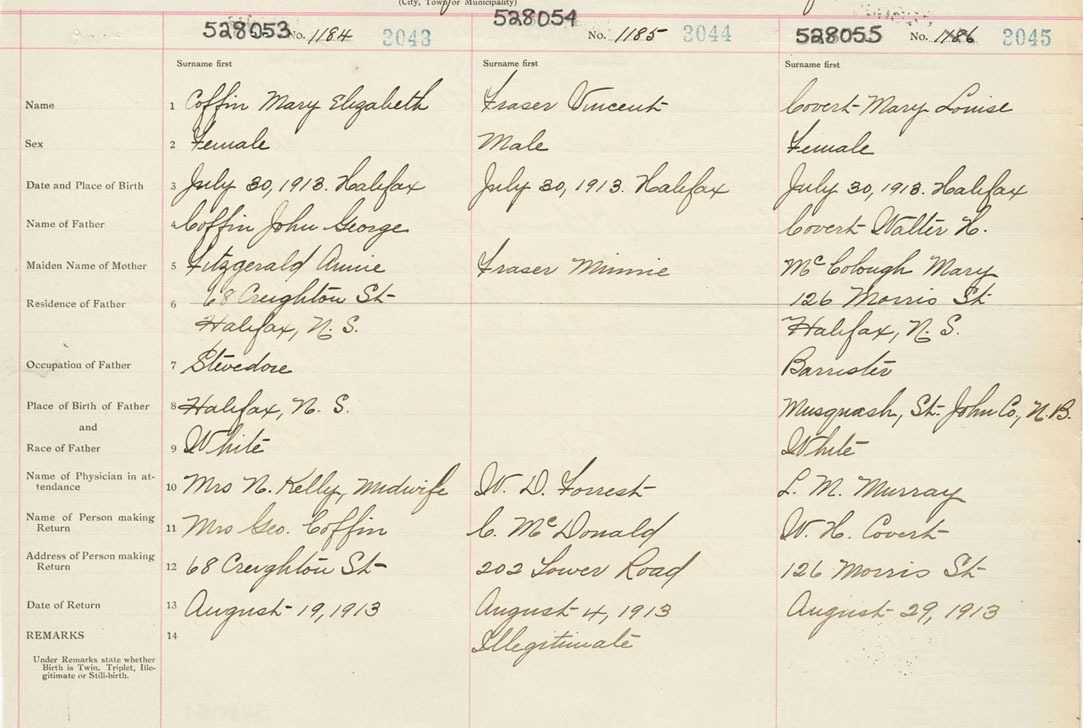 (City, Town or Municipality)
528053 No. 1184 2043
528054 No. 1185 2044
528055 No. 1186 2045
Surname first Surname first Surname first
Name 1 Coffin Mary Elizabeth Fraser Vincent Covert Mary Louise
Sex 2 Female Male Female
Date and Place of Birth 3 July 30, 1913. Halifax July 30, 1913. Halifax July 30, 1913. Halifax
Name of Father 4 Coffin John George Covert Walter H.
Maiden Name of Mother 5 Fitzgerald Annie Fraser Minnie McColough Mary
Residence of Father 6 68 Creighton St 126 Morris St
Halifax, N. S. Halifax, N. S.
Occupation of Father 7 Stevedore Barrister
Place of Birth of Father 8 Halifax, N. S. Musquash, St. John Co., N.B.
and
Race of Father 9 White White
Name of Physician in at-
tendance 10 Mrs N. Kelly, Midwife W. D. Forrest L. M. Murray
Name of Person making
Return 11 Mrs Geo. Coffin C. McDonald W. H. Covert
Address of Person making
Return 12 68 Creighton St 202 Lower Road 126 Morris St
Date of Return 13 August 19, 1913 August 4, 1913 August 29, 1913
REMARKS 14 Illegitimate
Under Remarks state whether
Birth is Twin, Triplet, Ille-
gitimate or Still-birth.